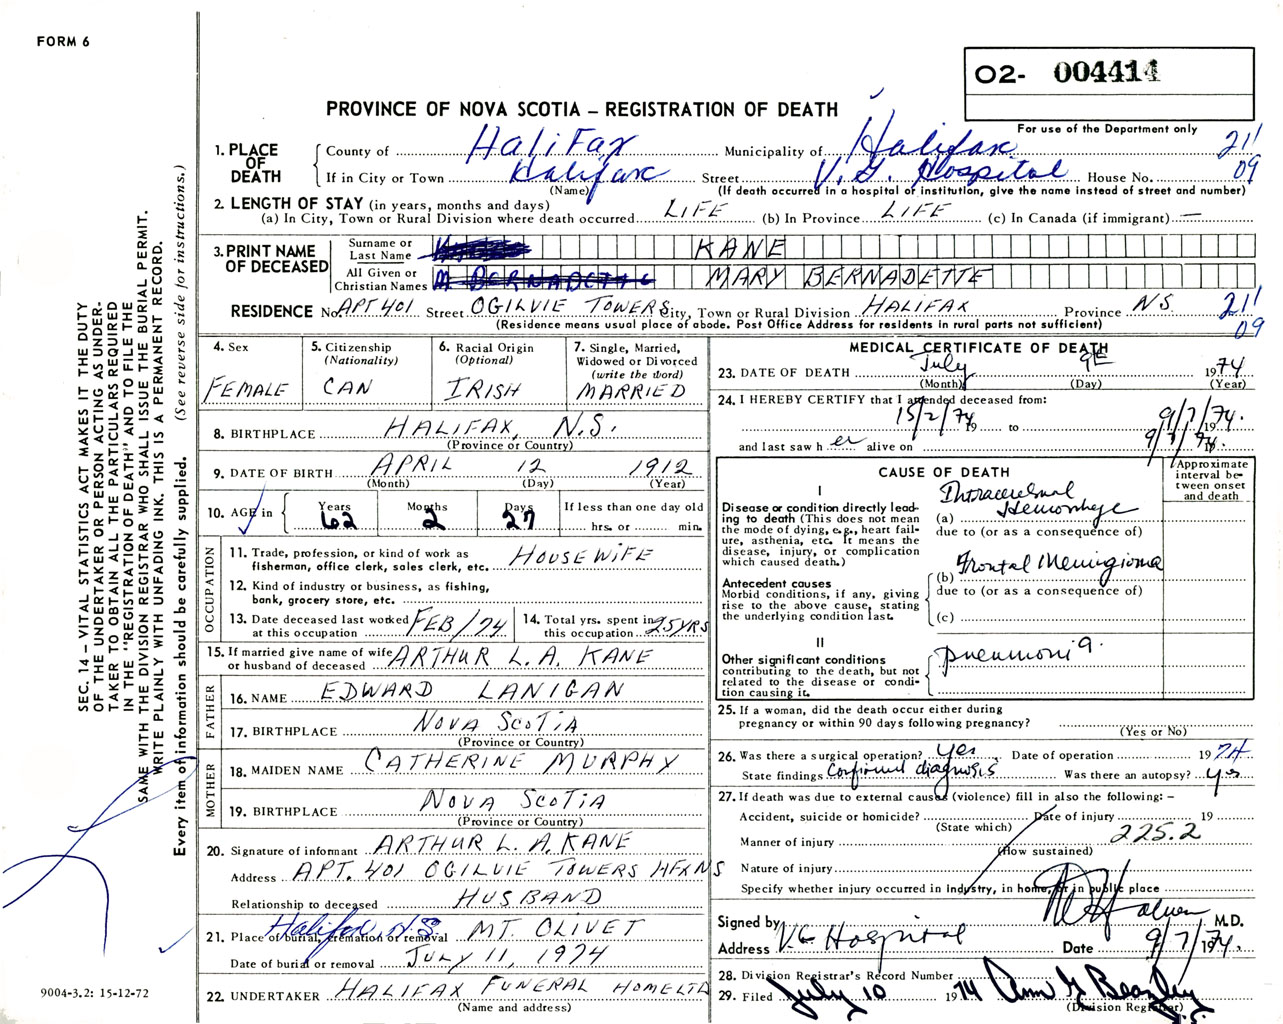 FORM 6
O2- 004414
PROVINCE OF NOVA SCOTIA – REGISTRATION OF DEATH
For use of the Department only
1. PLACE OF DEATH
County of Halifax Municipality of Halifax 21
If in City or Town Halifax Street V. G. Hospital House No. 09
(Name) (If death occurred in a hospital of institution, give the name instead of street and number)
2. LENGTH OF STAY (in years, months and days)
(a) In City, Town or Rural Division where death occurred LIFE (b) In Province LIFE (c) In Canada (if immigrant) —
3. PRINT NAME OF DECEASED
Surname or Last Name KANE
All Given or Christian Names M BERNADETTE MARY BERNADETTE
RESIDENCE No. APT 401 Street OGILVIE TOWERS City, Town or Rural Division HALIFAX Province NS 21
(Residence means usual place of abode. Post Office Address for residents in rural parts not sufficient) 09
4. Sex
FEMALE
5. Citizenship
(Nationality)
CAN
6. Racial Origin
(Optional)
IRISH
7. Single, Married,
Widowed or Divorced
(write the word)
MARRIED
8. BIRTHPLACE HALIFAX, N.S.
(Province or Country)
9. DATE OF BIRTH APRIL 12 1912
(Month) (Day) (Year)
10. AGE in
Years Months Days If less than one day old
62 2 27 hrs. or min.
OCCUPATION
11. Trade, profession, or kind of work as
fisherman, office clerk, sales clerk, etc. HOUSEWIFE
12. Kind of industry or business, as fishing,
bank, grocery store, etc.
13. Date deceased last worked
at this occupation FEB/74
14. Total yrs. spent in
this occupation 25 YRS
15. If married give name of wife
or husband of deceased ARTHUR L. A. KANE
FATHER
16. NAME EDWARD LANIGAN
17. BIRTHPLACE NOVA SCOTIA
(Province or Country)
MOTHER
18. MAIDEN NAME CATHERINE MURPHY
19. BIRTHPLACE NOVA SCOTIA
(Province or Country)
20. Signature of informant ARTHUR L. A. KANE
Address APT. 401 OGILVIE TOWERS HFX NS
Relationship to deceased HUSBAND
Halifax N.S.
21. Place of burial, cremation or removal MT. OLIVET
Date of burial or removal JULY 11, 1974
22. UNDERTAKER HALIFAX FUNERAL HOME LTD
(Name and address)
MEDICAL CERTIFICATE OF DEATH
23. DATE OF DEATH July 9 1974
(Month) (Day) (Year)
24. I HEREBY CERTIFY that I attended deceased from:
15/2/74 19 to 9/7/74.
and last saw h er alive on 9/7/74. 19
CAUSE OF DEATH
Approximate
interval be-
tween onset
and death
I
Disease or condition directly lead-
ing to death (This does not mean
the mode of dying, e.g., heart fail-
ure, asthenia, etc. It means the
disease, injury, or complication
which caused death.)
Intracerebral
Hemorrhage
(a)
due to (or as a consequence of)
Antecedent causes
Morbid conditions, if any, giving
rise to the above cause, stating
the underlying condition last.
Frontal Meningioma
(b)
due to (or as a consequence of)
(c)
II
Other significant conditions
contributing to the death, but not
related to the disease or condi-
tion causing it.
pneumonia.
25. If a woman, did the death occur either during
pregnancy or within 90 days following pregnancy?
(Yes or No)
26. Was there a surgical operation? yes Date of operation 1974
State findings Confirmed diagnosis Was there an autopsy? yes
27. If death was due to external causes (violence) fill in also the following: –
Accident, suicide or homicide? Date of injury 19
(State which)
Manner of injury 225.2
(How sustained)
Nature of injury
Specify whether injury occurred in Industry, in home, or in public place
Signed by M.D.
Address V.G Hospital Date 9/7/1974.
28. Division Registrar's Record Number
29. Filed July 10 1974 Ann G Beazley
(Division Registrar)
SEC. 14 – VITAL STATISTICS ACT MAKES IT THE DUTY
OF THE UNDERTAKER OR PERSON ACTING AS UNDER-
TAKER TO OBTAIN ALL THE PARTICULARS REQUIRED
IN THE "REGISTRATION OF DEATH" AND TO FILE THE
SAME WITH THE DIVISION REGISTRAR WHO SHALL ISSUE THE BURIAL PERMIT.
WRITE PLAINLY WITH UNFADING INK. THIS IS A PERMANENT RECORD.
Every item of information should be carefully supplied. (See reverse side for instructions.)
9004-3.2: 15-12-72